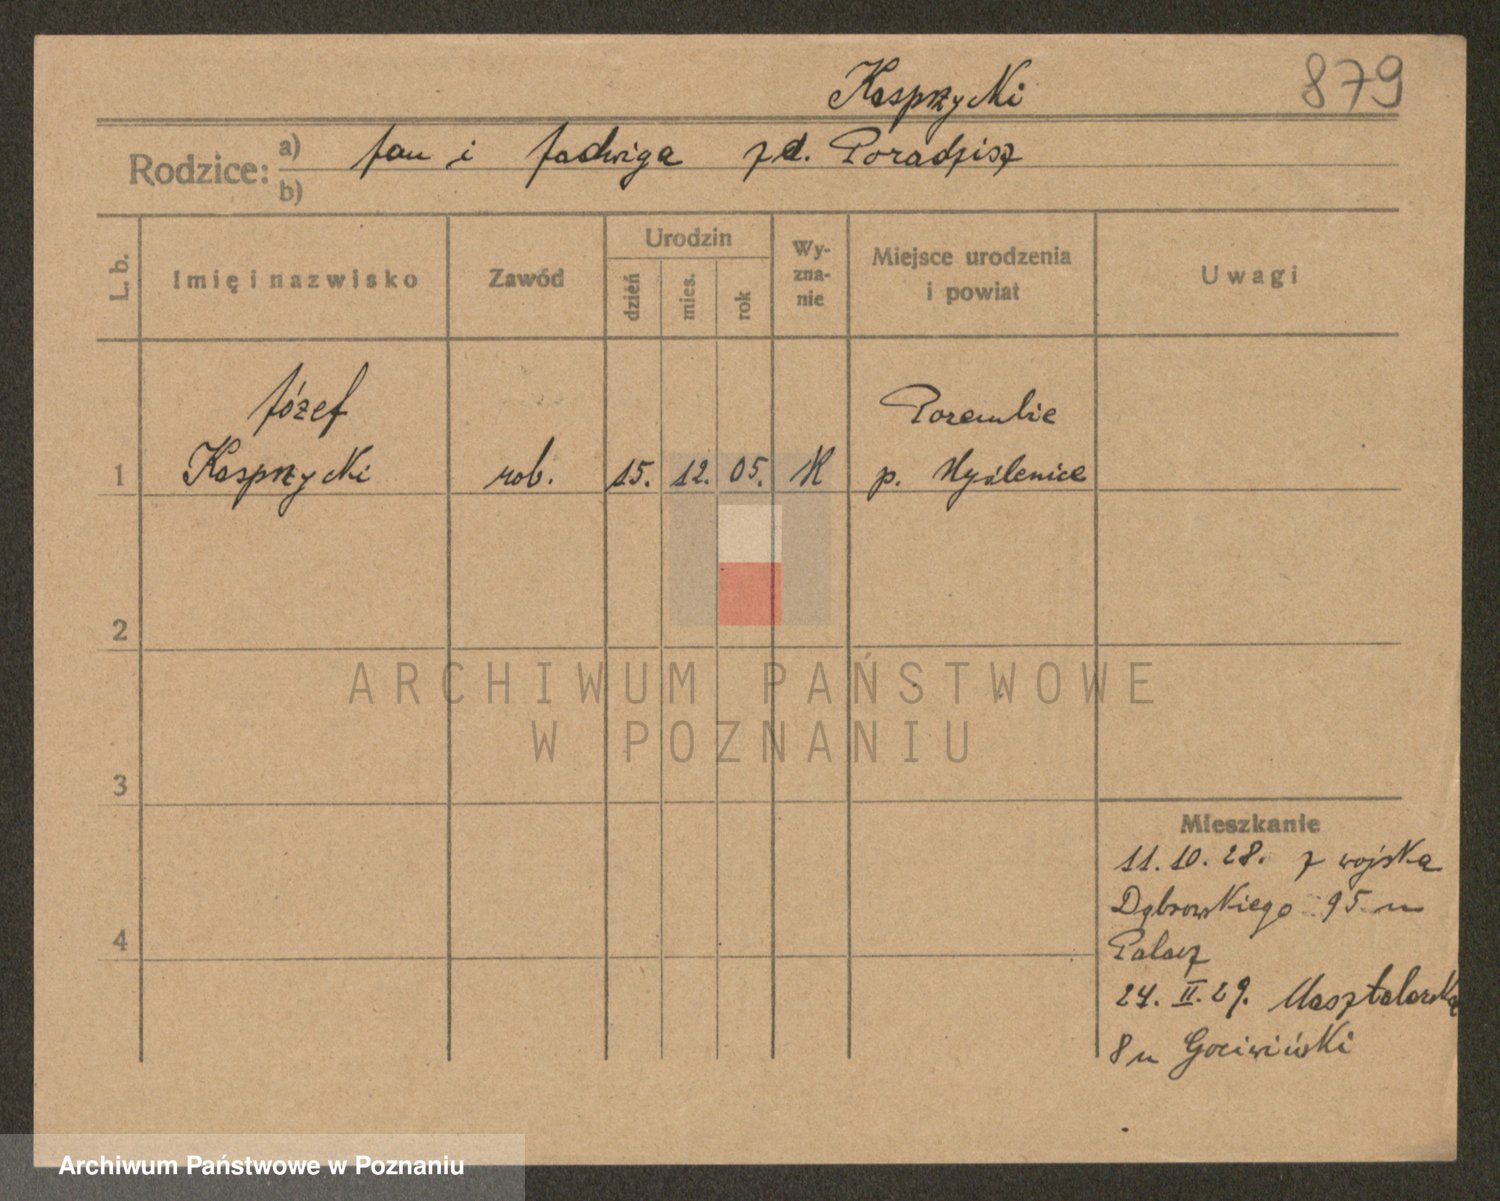 Kasprzycki 879
Rodzice: a) Jan i Jadwiga zd. Poradzisz
b)
L. b. Imię i nazwisko Zawód Urodzin dzień mies. rok Wy-zna-nie Miejsce urodzenia i powiat Uwagi
Józef
Kasprzycki
Porembie
1 rob. 15. 12. 05. K p. Myślenice
2
ARCHIWUM PAŃSTWOWE
W POZNANIU
3
Mieszkanie
11. 10. 28. z wojska
Dąbrowskiego 95 u
4
Palacz
24. II. 29. Masztalarska
8 u
Archiwum Państwowe w Poznaniu